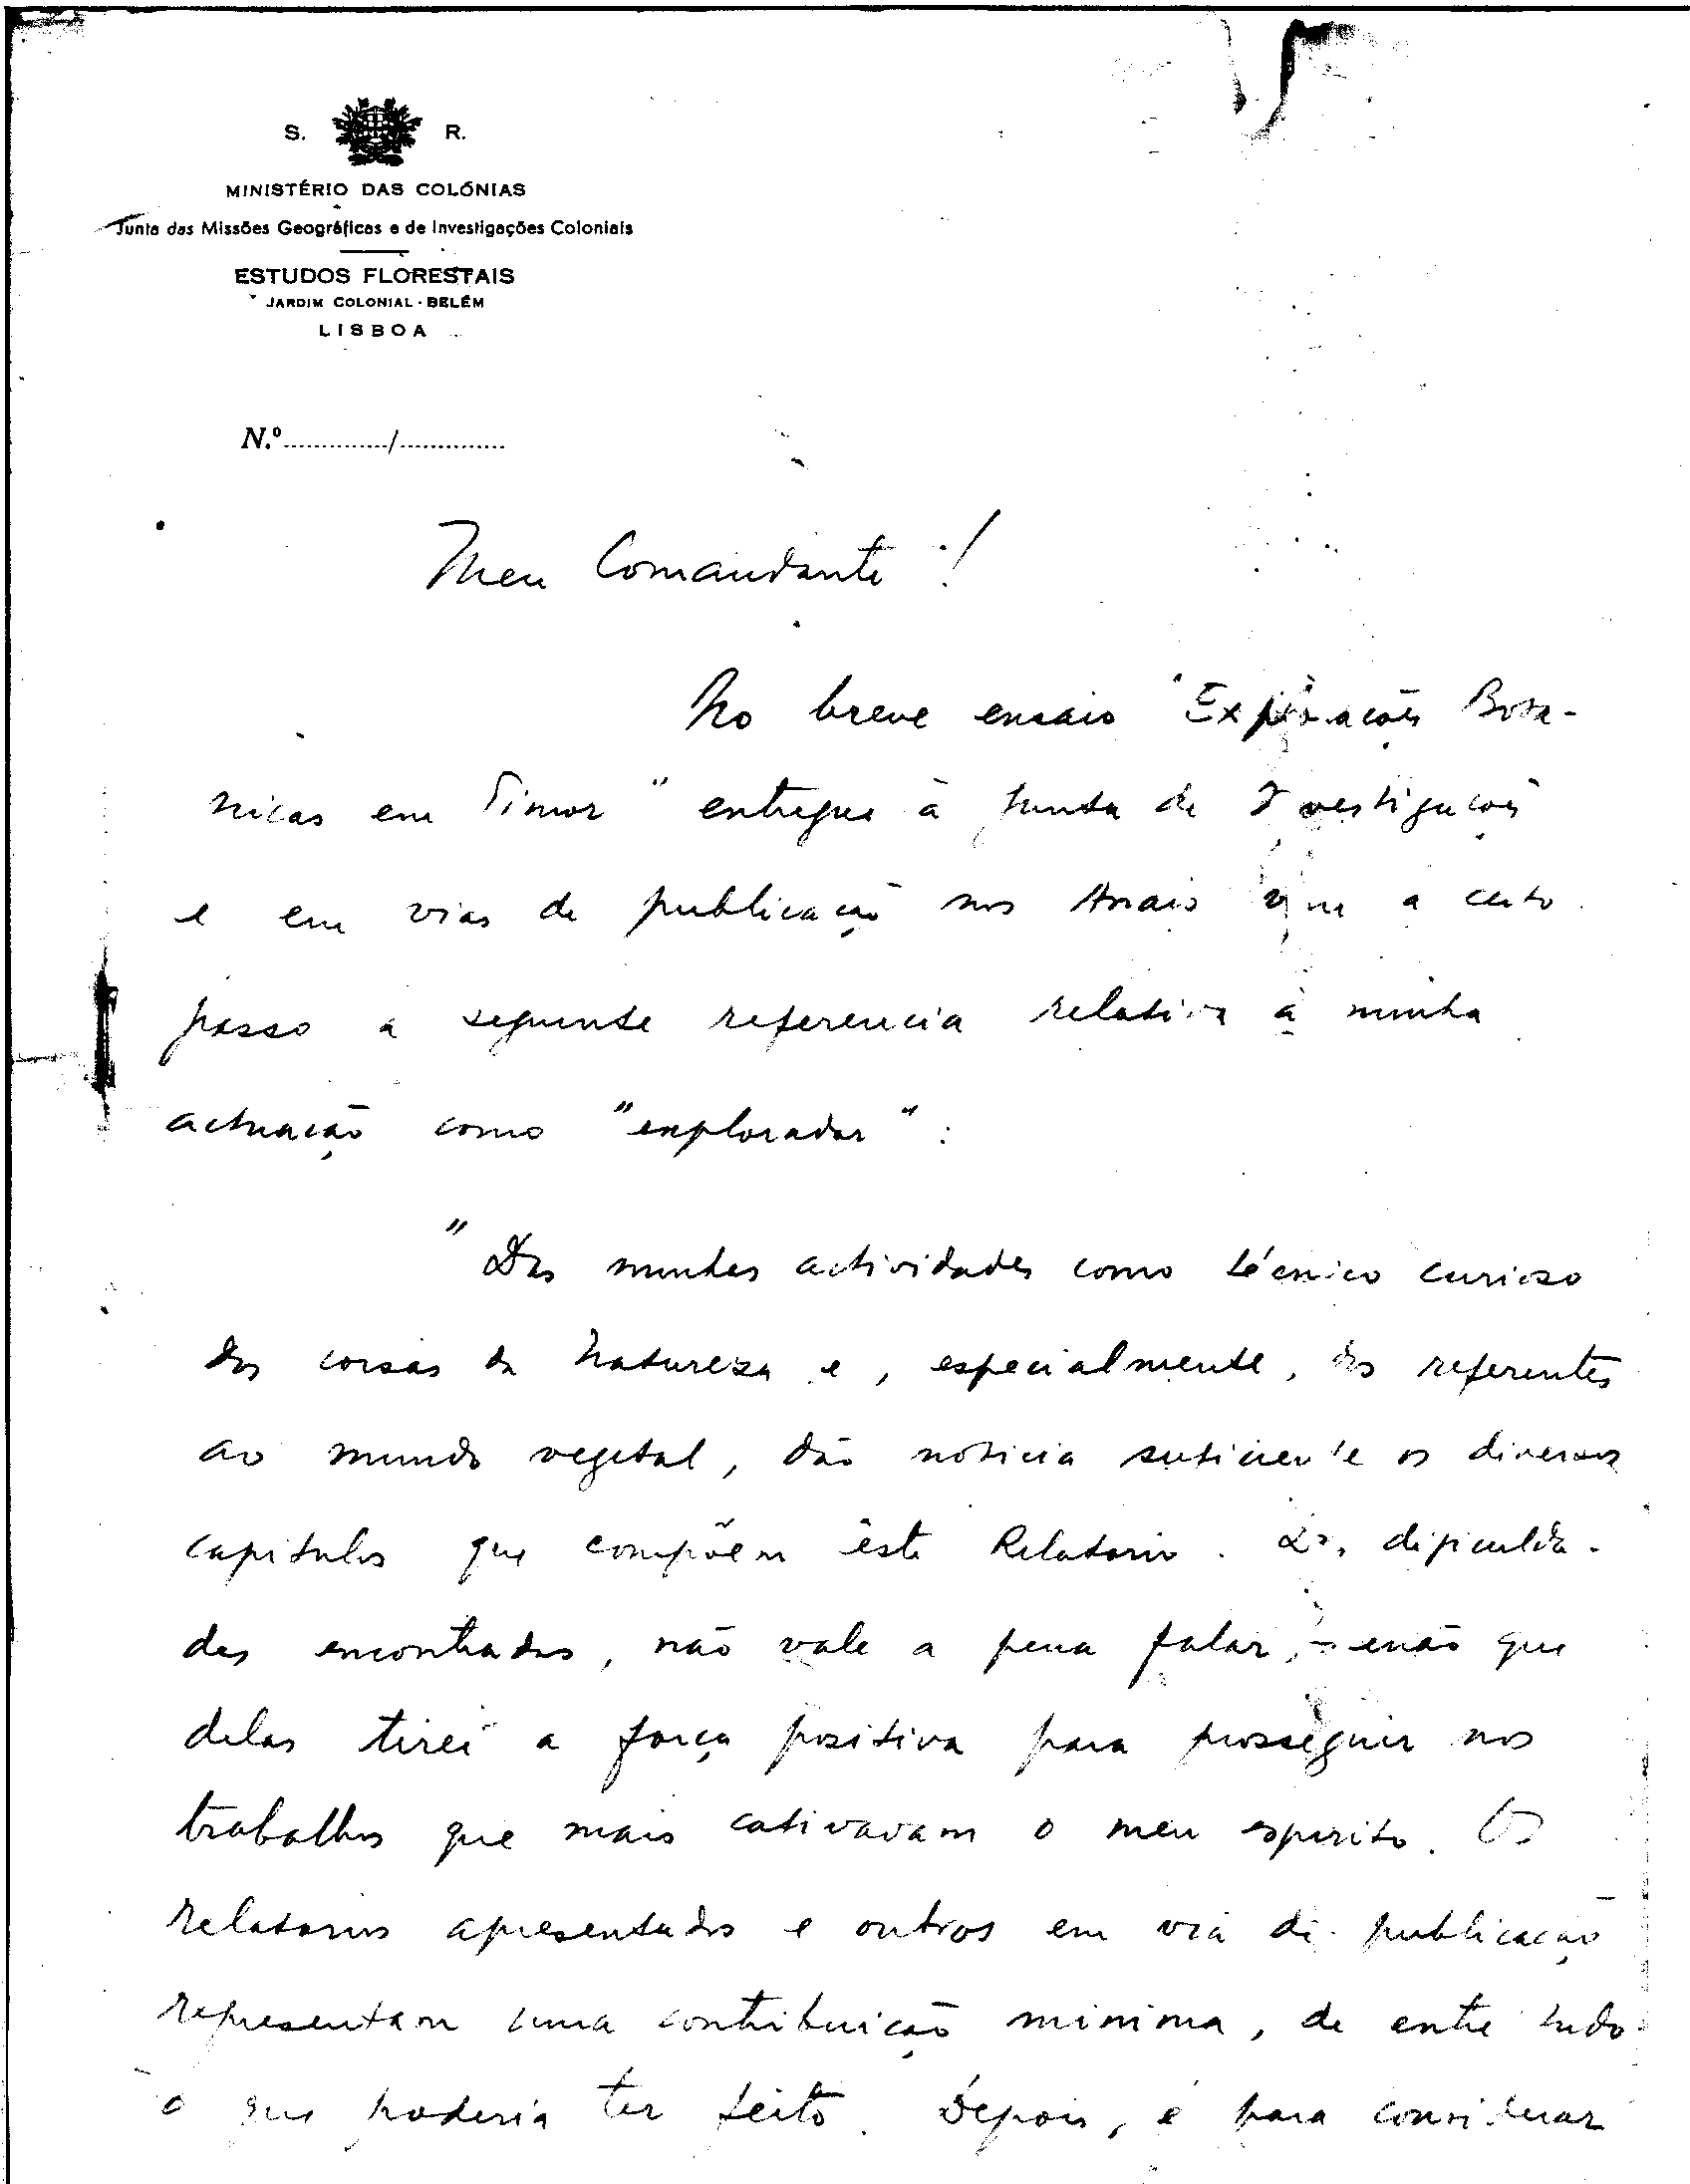 S. R.
MINISTÉRIO DAS COLÓNIAS
Junta das Missões Geográficas e de Investigações Coloniais
ESTUDOS FLORESTAIS
JARDIM COLONIAL - BELÉM
LISBOA
N.º............../..............
Meu Comandante!
No breve ensaio "Explorações Bota-
nicas em Timor" entregue à Junta de Investigações
e em vias de publicação nos Anais vem a certo
passo a seguinte referencia relativa à minha
actuação como "explorador":
"Das minhas actividades como técnico curioso
das coisas da Natureza e, especialmente, das referentes
ao mundo vegetal, dão noticia suficiente os diversos
capitulos que compõem êste Relatorio. Das dificulda-
des encontradas, não vale a pena falar, senão que
delas tirei a força positiva para prosseguir nos
trabalhos que mais cativavam o meu espirito. Os
relatorios apresentados e outros em via de publicação
representam uma contribuição minima, de entre tudo
o que poderia ter feito. Depois, é para considerar